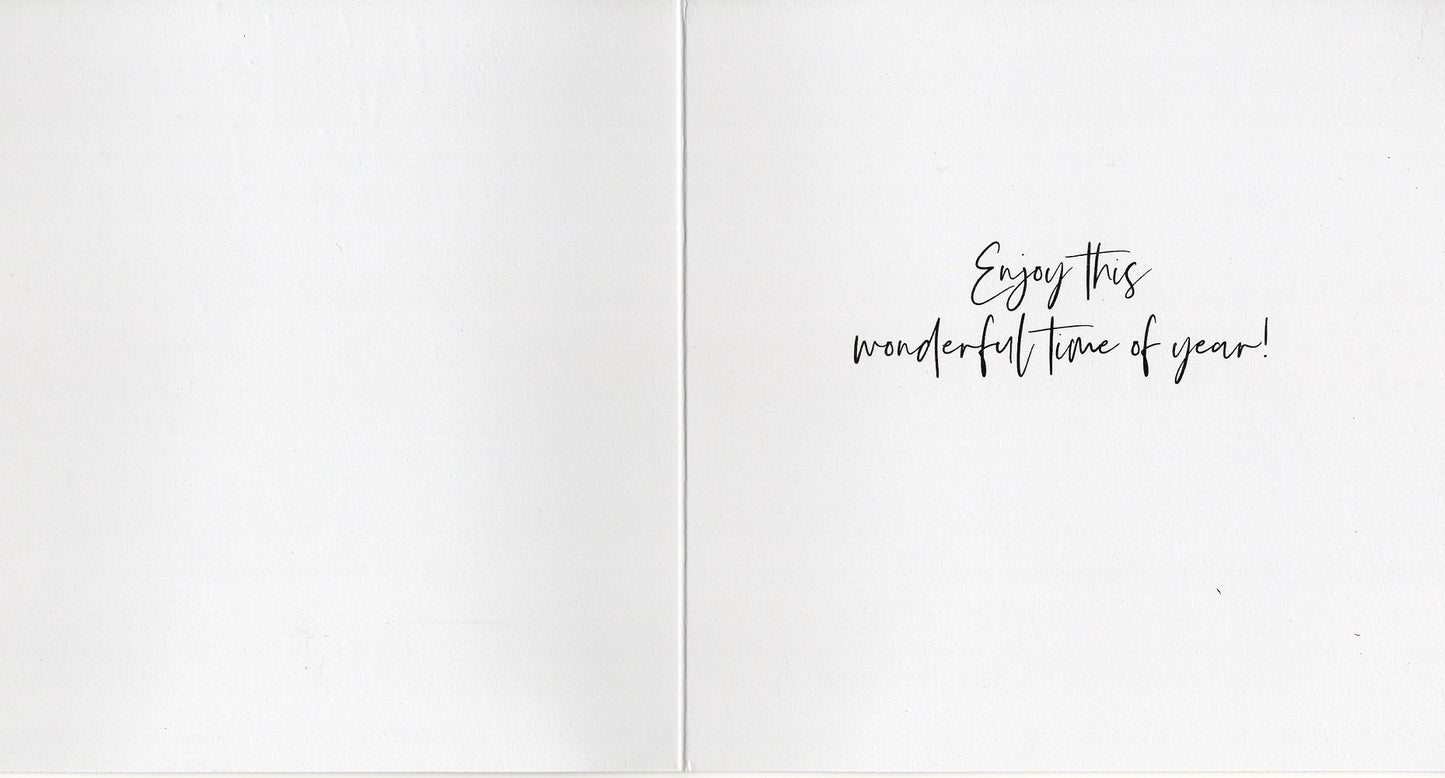 Enjoy this
wonderful time of year!